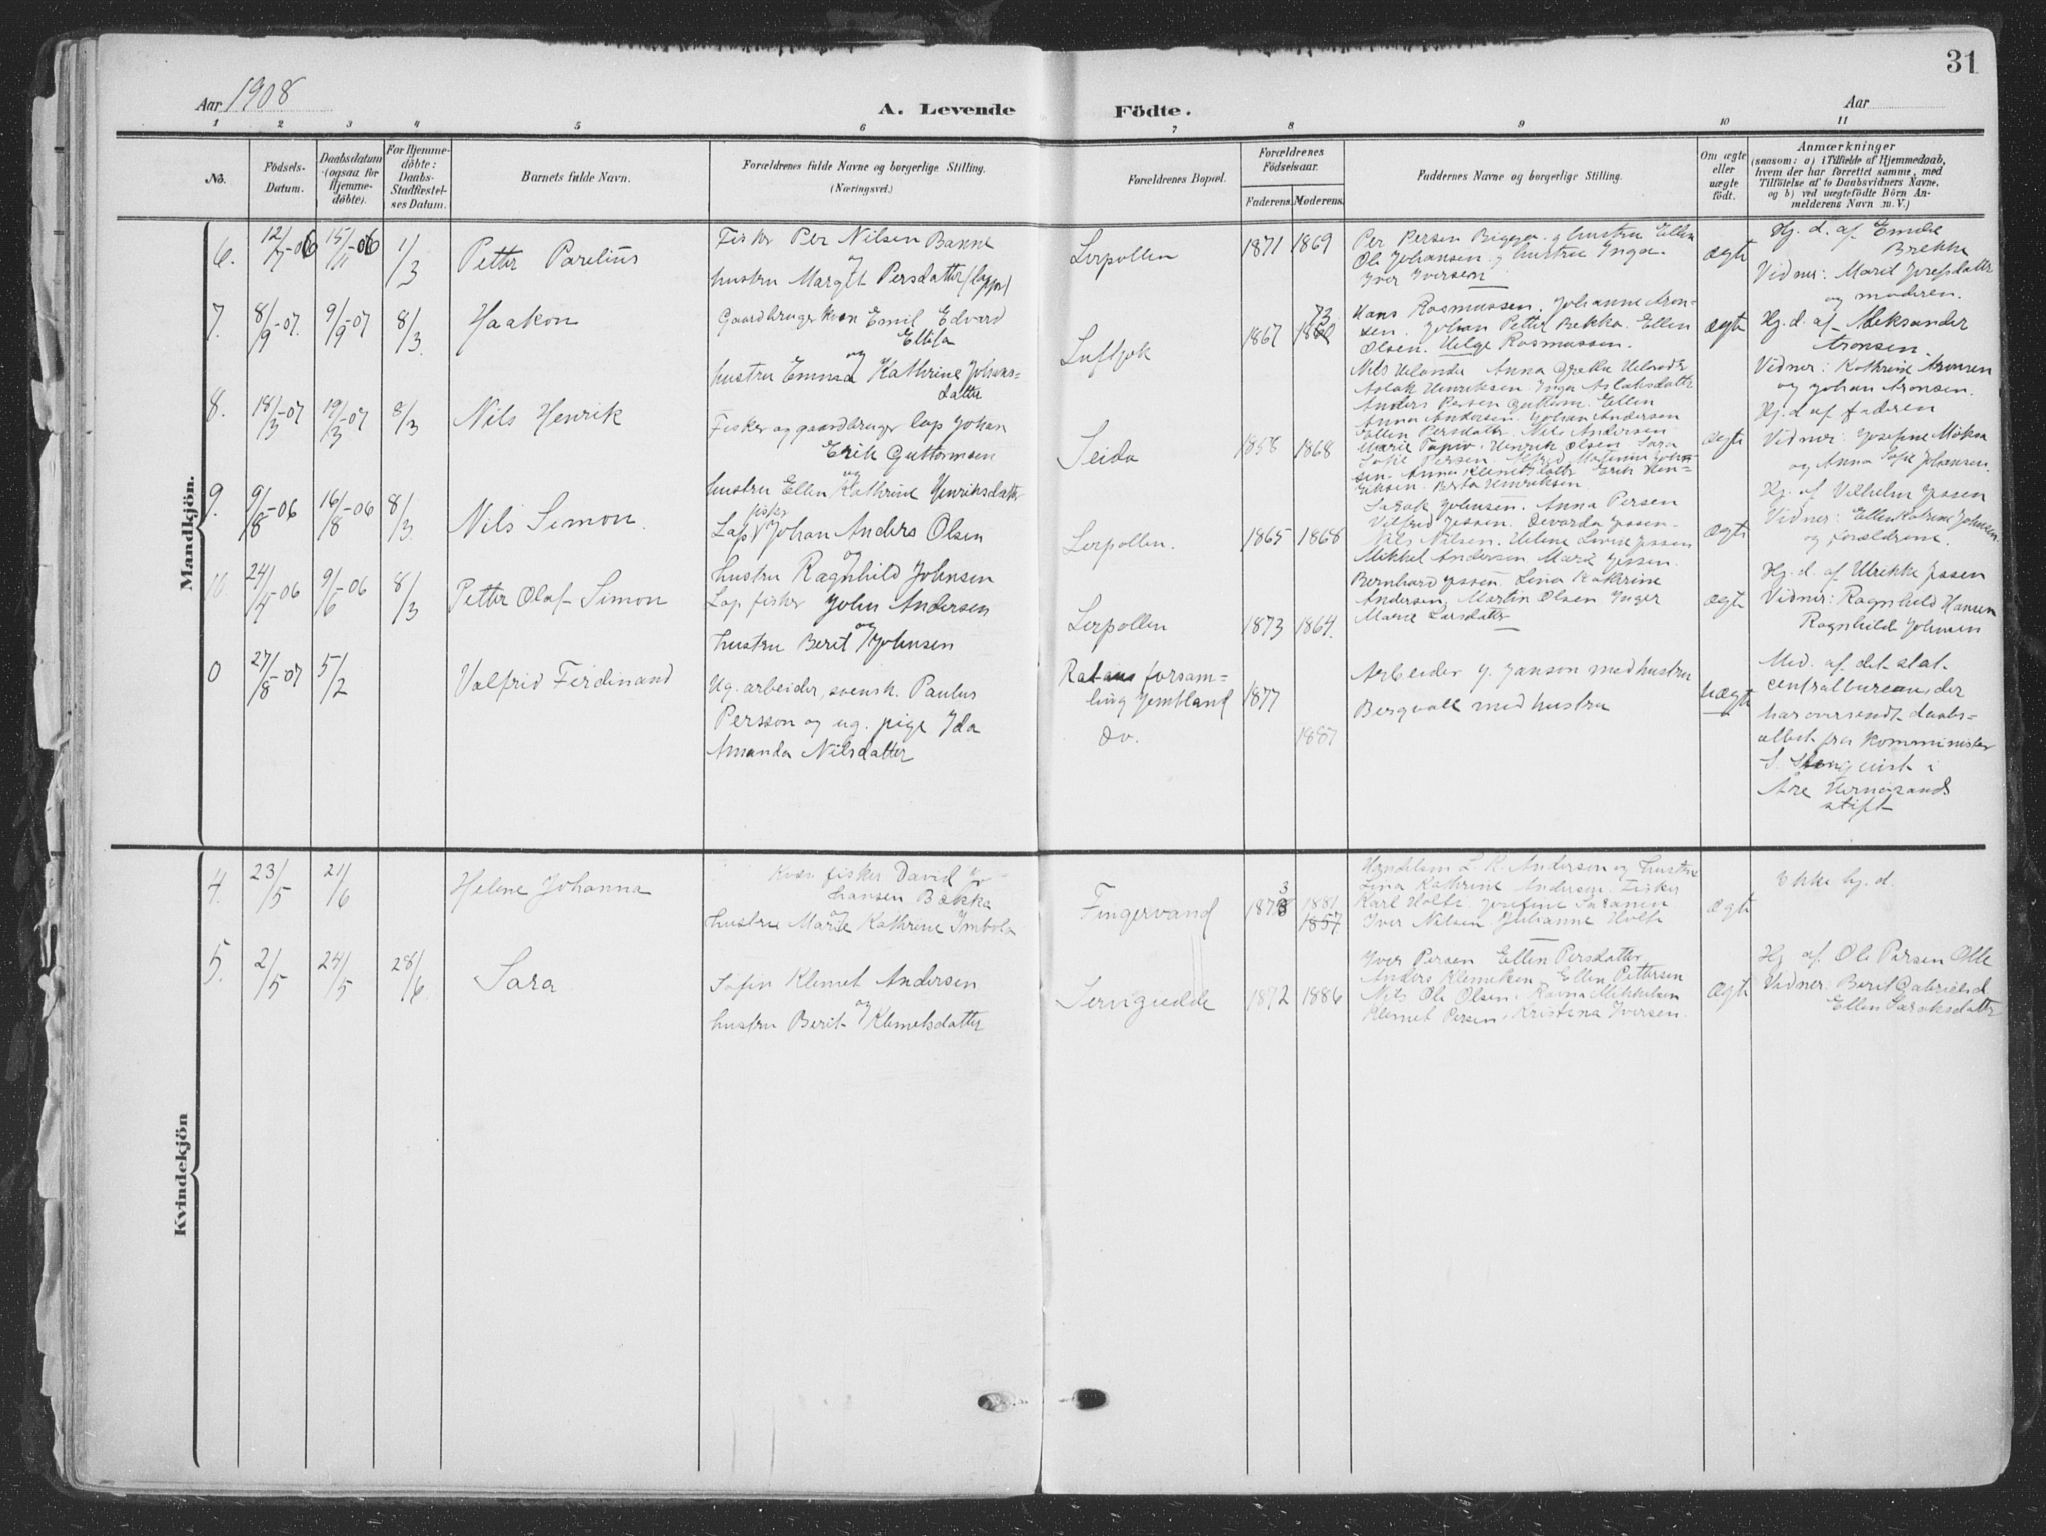 31
Aar 1908
A. Levende Födte.
Aar
1 2 3 4 5 6 7 8 9 10 11
No.
Födsels-Datum.
Daabsdatum (ogsaa for Hjemme-döbte).
For Hjemme-döbte: Daabs-Stadfæstel-ses Datum.
Barnets fulde Navn.
Forældrenes fulde Navne og borgerlige Stilling.
(Næringsvei.)
Forældrenes Bopæl.
Forældrenes Födselsaar.
Faderens. Moderens.
Faddernes Navne og borgerlige Stilling.
Om ægte eller uægte födt.
Anmærkninger
(saasom: a) i Tilfælde af Hjemmedaab,
hvem der har forrettet samme, med
Tilföielse af to Daabsvidners Navne,
og b) ved uægtefödte Börn An-
melderens Navn m. V.)
Mandkjön.
6. 12/7-06 15/7-06 1/3 Petter Parelius
Fisker Per Nilsen Banne
og
hustru Margit Persdatter (lapper)
Lerpollen 1871 1869
Per Persen Bigga og hustru Ellen
Ole Johansen og hustru Inga
Iver Iversen
ægte
Hj. d. af Emilie
Brekke
Vidner: Marit Josefsdatter
og moderen.
7. 8/9-07. 9/9-07 8/3. Haakon
Gaardbruger kven Emil Edvard
Ellila
og
hustru Emma Kathrine Johans-
datter
Luftjok 1867 73
Hans Rasmussen. Johanne Aron-
sen. Johan Petter Bekka. Ellen
Olsen. Helge Rasmussen.
ægte
Hj. d. af Aleksander
Aronsen.
Vidner: Kathrine Aronsen
og Johan Aronsen.
8. 18/3-07 19/3-07 8/3 Nils Henrik
Fisker og gaardbruger lap Johan
Erik Guttormsen
og
hustru Ellen Kathrine Henriksdatter
Seida 1858 1868
Nils Helander Anna Grethe Helander
Aslak Henriksen Inga Aslaksdatter
Anders Persen Guttorm. Ellen
Anna Andersen. Johan Andersen
Ellen Persdatter. Nils Andersen
Marie Tapio. Henrik Olsen Sara
Sofie Persen. Alfred Martinius Johan-
sen. Anna Klemetsdatter Erik Hen-
riksen. Berta Henriksen
ægte
Hj. d. af faderen
Vidner: Josefine Mökka
og Anna Sofie Johansen.
9. 9/8-06 16/8-06 8/3. Nils Simon.
fisker
Lap Johan Anders Olsen
og
hustru Ragnhild Johnsen
Lerpollen. 1865 1868
Sarak Johnsen. Anna Persen
Vilfrid Jessen. Devarda Jessen
Nils Nilsen. Helene Lovise Jessen
Mikkel Andersen Marie Jessen.
ægte
Hj. af Vilhelm Jessen
Vidner: Ellen Katrine Johnsen
og forældrene.
10 24/4-06 9/6-06 8/3 Petter Olaf Simon
Lap fisker John Andersen
og
hustru Berit Johnsen
Lerpollen 1873 1864.
Bernhard Jessen. Lina Kathrine
Andersen. Martin Olsen Inger
Marie Larsdatter
ægte
Hj. d. af Ulrikke Jessen
Vidner: Ragnhild Hansen
Ragnhild Johnsen
0 27/8-07 5/2 Valfrid Ferdinand
Ug. arbeider, svensk. Paulus
Persson og ug. pige Ida
Amanda Nilsdatter
forsam-
ling Jemtland
do.
1877 1887
Arbeider J. Janson med hustru
Bergvall med hustru
Uægte
Med. af det stat.
centralbureau, der
har oversendt daabs-
attest fra komminister
i
Åre Hernösands
stift
Kvindekjön
4. 23/5 21/6 Helene Johanna
Kven fisker David Jo-
hansen Bekka
og
hustru Marie Kathrine Imbola
Fingervand 1873 1881
1857
Handelsm L. K. Andersen og hustru
Lina Kathrine Andersen. Fisker
Karl Holti. Josefine Saranen.
Iver Nilsen Julianne Holti
ægte
Ikke hj. d.
5. 2/5 24/5 28/6 Sara
Söfin Klemet Andersen
og
hustru Berit Klemetsdatter
1872 1886
Iver Persen Ellen Persdatter
Anders Klemetsen Ellen Pettersen
Nils Ole Olsen. Ravna Mikkelsen
Klemet Persen. Kristina Iversen.
ægte
Hj. af Ole Persen Olle
Vidner: Berit Gabrielsd.
Ellen Saraksdatter